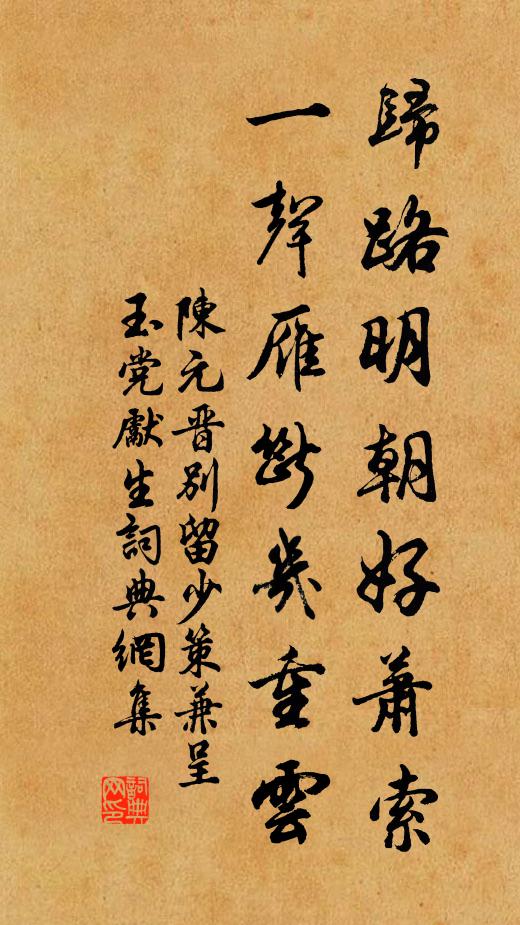 歸路明朝好蕭索
一聲雁斷幾重雲
陳元晋別留少策兼呈
玉党獻生詞典網集
詞典网印